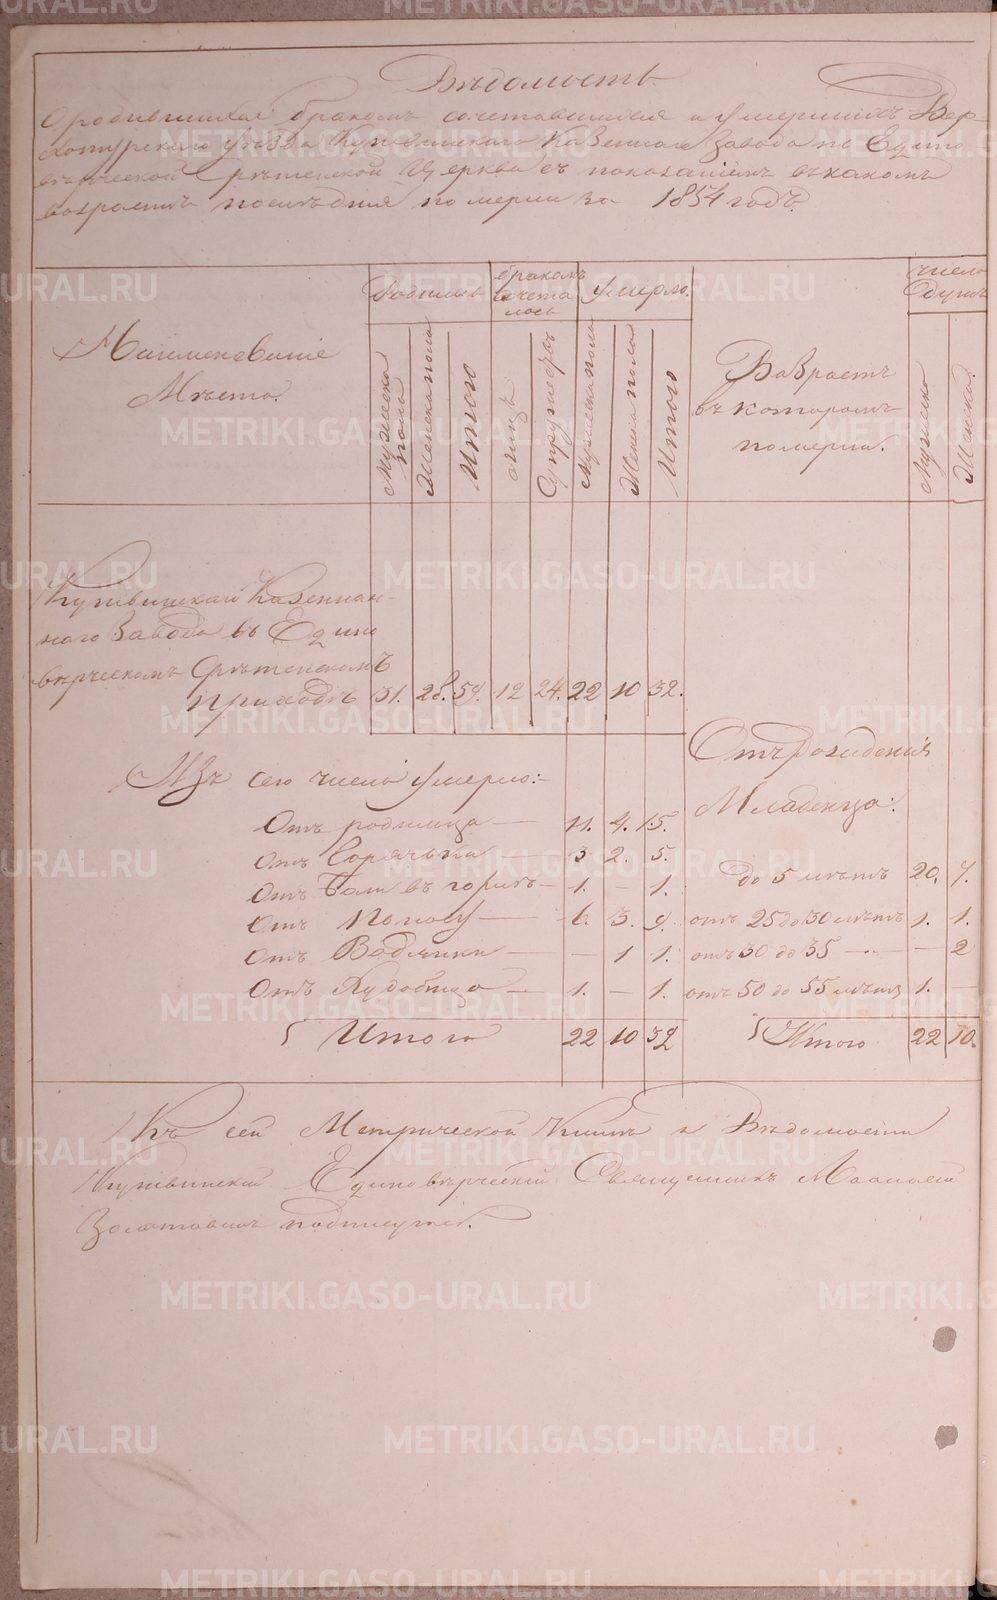 Вѣдомость
О родившихся бракомъ сочетавшихся и умершихъ Вер-
хотурскаго уѣзда Кушвинскаго Казеннаго Завода по Едино
вѣрческой Срѣтенской Церкви съ показаніемъ въ какомъ
возрастѣ послѣдніе померли за 1854 годъ.
Наименованіе Мѣста.
Родилось
бракомъ сочета лось
Умерло.
Возрастъ въ которомъ померли.
число Душъ
Мужеска пола
Женска пола
Итого
Супружествъ
Мужеска пола
Женска пола
Итого
Мужска
Женска.
Кушвинскаго Казеннаго
Завода въ Едино
вѣрческомъ Срѣтенскомъ
приходѣ 31. 28. 59. 12 24. 22 10 32.
Изъ сего числа умерло:-
Отъ родимца — 11. 4. 15.
Отъ Горячьки — 3 2. 5.
Отъ Боли въ горлѣ — 1. — 1.
Отъ Поносу — 6. 3. 9.
Отъ Водянки — — 1 1.
Отъ — 1. — 1.
Итого 22 10 32
Отъ рожденія
Младенца:
до 5 лѣтъ 20. 7.
отъ 25 до 30 лѣтъ 1. 1.
отъ 30 до 35 — — 2
отъ 50 до 55 лѣтъ 1. —
Итого 22 10.
Къ сей Метрической Книгѣ и Вѣдомости
Кушвинскій Единовѣрческій Священникъ
подписуюсь.
METRIKI.GASO-URAL.RU